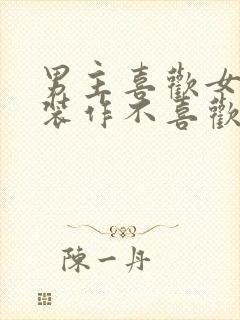 男主喜歡女
裝作不喜歡
陳一丹